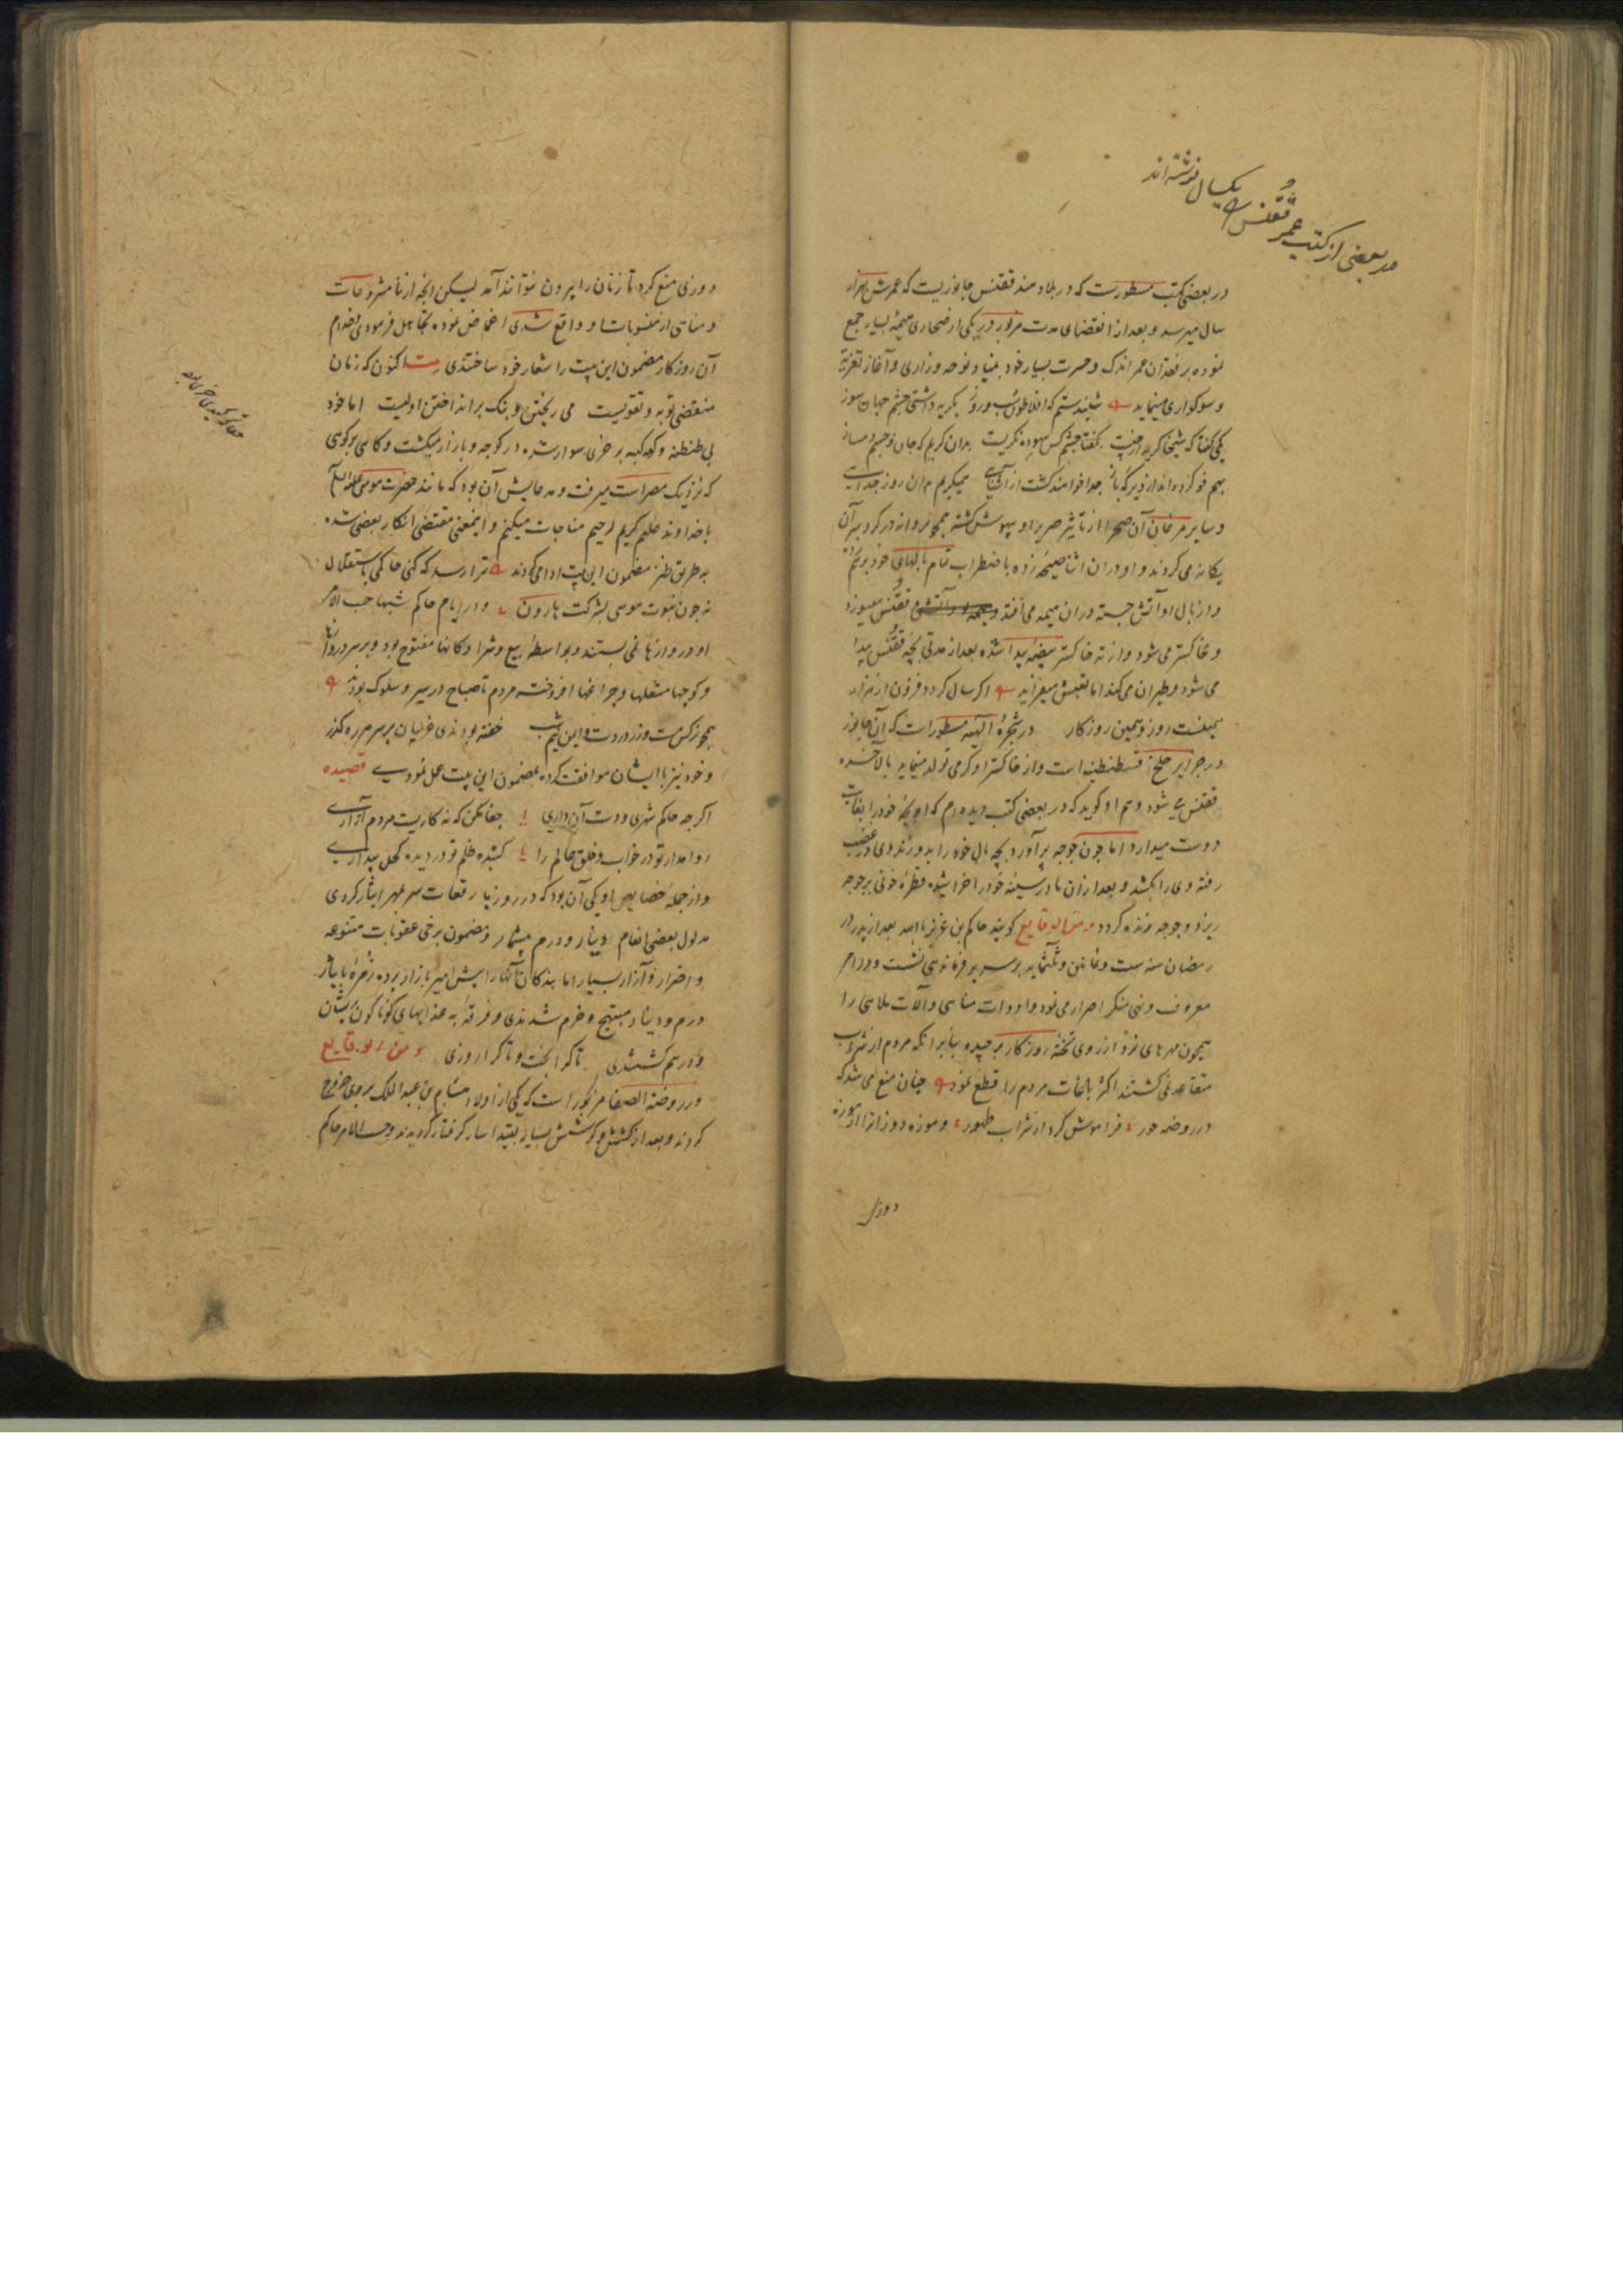 در بعضی از کتب عمر ققنس
یکسال نوشته‌اند
در بعضی کتب مسطورست که در بلاد هند ققنس جانوریست که عمرش بهزار
سال میرسد و بعد از انقضای مدت مزبور در یکی از صحاری هیمهٔ بسیار جمع
نموده بر فقدان عمر اندک و حسرت بسیار خود بنیاد نوحه و زاری و آغاز تعزیه
و سوکواری مینماید شنیدستم که افلاطون شب و روز بکریه داشتی چشم جهان سوز
یکی کفتا که شیخا کریه از چیست بکفتا چشم کس بیهوده نکریست بدان کریم که جان و جسم دمساز
بهم خو کرده‌اند از دیرکه باز جدا خواهند کشت از آشنایی همیکریم بدان روز جدایی
و سایر مرغان آن صحرا از تأثیر صریر او بیهوش کشته همچو پروانه در کرد سر آن
یکانه می کردند و او در ان اثنا صیحه زده باضطراب تمام بالهای خود برهم
و از بال او آتش جسته در ان هیمه می افتد و ققنس میسوزد
و خاکستر می شود و از ته خاکستر بیضهٔ پیدا شده بعد از مدتی بچه ققنس پیدا
می شود و طیران می کند اما تعیش میفزاید اکر سال کردد فزون از هزار
همینست روز و همین روزکار در شجرهٔ الهیه مسطور است که آن جانور
در جزایر خلیج قسطنطنیه است و از خاکستر او کرمی تولد مینماید بالآخره
ققنس می شود و هم او کوید که در بعضی کتب دیده‌ام که او بچهٔ خود را بغایت
دوست میدارد اما چون جوجه پر آورد بچه بال خود را بدو زند وی در غضب
رفته وی را بکشد و بعد از ان مادر سینه خود را خراشیده قطرهٔ خونی بر جوجه
ریزد و جوجه زنده کردد و من الوقایع کویند حاکم بن عزیز بامداد بعد از پدر در
رمضان سنه ست و ثمانین و ثلثمایه بر سریر فرماندهی نشست و در امر
معروف و نهی منکر اصرار می نمود و ادوات مناهی و آلات ملاهی را
همچون مهرهای نرد از روی تختهٔ روزکار برچیده بنابر آنکه مردم از شراب
متقاعد نمی کشتند اکثر باغات مردم را قطع نمود چنان منع می شد که
در روضه حور فراموش کرد از شراب طهور و موزه دوزان را از موزه
دوزی
دوزی منع کرد تا زنان را بیرون نتوانند آمد لیکن آنچه از نامشروعات
و مناهی از منسوبات او واقع شدی اغماض نموده تجاهل فرمودی و مردم
آن روزکار مضمون این بیت را شعار خود ساختندی بیت اکنون که زمان
منقضی توبه و تقویست می ریختن و بنک بر انداختن اولیست اما خود
بی طنطنه و کوکبه بر خری سوار شده در کوچه و بازار میکشت و کاهی بکوهی
که نزدیک مصر است میرفت و مدعایش آن بود که مانند حضرت موسی علیه السلام
با خداوند علیم کریم رحیم مناجات میکنم و اینمعنی مقتضی انکار بعضی شده
به طریق طنز مضمون این بیت ادا می کردند ترا رسد که کنی حاکمی باستقلال
نه چون نبوت موسی بشرکت هارون و در ایام حاکم شبها حسب الامر
او دروازها نمی بستند و بواسطهٔ بیع و شرا دکانها مفتوح بود و بر سر دروازها
و کوچها مشعلها و چراغها افروخته مردم تا صباح در سیر و سلوک بودند
همچو نرکس مست وزر در دست و این نیم شب خفته بودندی غریبان بر سر هر ره کذر
و خود نیز با ایشان موافقت کرده بمضمون این بیت عمل نمودی قصیده
اکر چه حاکم شهری و دست آن داری جفا مکن که نه کاریست مردم آزاری
روا مدار تو در خواب و خلق عالم را کشیده ظلم تو در دیده کحل بیداری
و از جملهٔ خصایص او یکی آن بود که در روز بار رقعات سر بمهر ایثار کردی
مدلول بعضی انعام دینار و درم بیشمار و مضمون برخی عقوبات متنوعه
و اضرار و آزار بسیار اما بندکان آنها را پیش امیر بازار برده زمره بایثار
درم و دینار مبتهج و خرم شدندی و فرقه به عذابهای کوناکون پریشان
و درهم کشتندی تا کرا بخت و تا کرا روزی و من الوقایع
در روضة الصفا مذکور است که یکی از اولاد هشام بن عبد الملک بر وی خروج
کرد و بعد از کشش و کوشش بسیار بقید اسار کرفتار کردید و حسب الامر حاکم